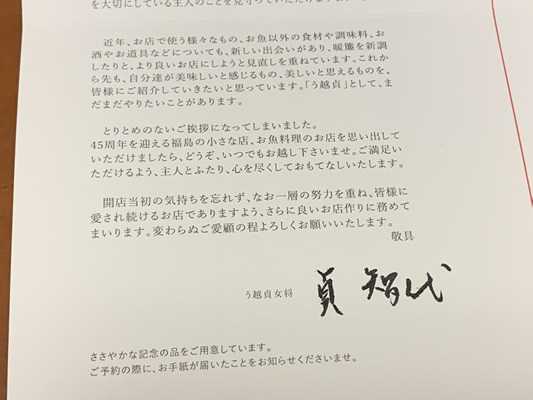 を大切にしている主人のことを見守っていただけますよう
近年、お店で使う様々なもの、お魚以外の食材や調味料、お
酒やお道具などについても、新しい出会いがあり、暖簾を新調
したりと、より良いお店にしようと見直しを重ねています。これか
ら先も、自分達が美味しいと感じるもの、美しいと思えるものを、
皆様にご紹介していきたいと思っています。「う越貞」として、ま
だまだやりたいことがあります。
とりとめのないご挨拶になってしまいました。
45周年を迎える福島の小さな店、お魚料理のお店を思い出して
いただけましたら、どうぞ、いつでもお越し下さいませ。ご満足い
ただけるよう、主人とふたり、心を尽くしておもてなしいたします。
開店当初の気持ちを忘れず、なお一層の努力を重ね、皆様に
愛され続けるお店でありますよう、さらに良いお店作りに務めて
まいります。変わらぬご愛顧の程よろしくお願いいたします。
敬具
う越貞女将 貞 智代
ささやかな記念の品をご用意しています。
ご予約の際に、お手紙が届いたことをお知らせくださいませ。